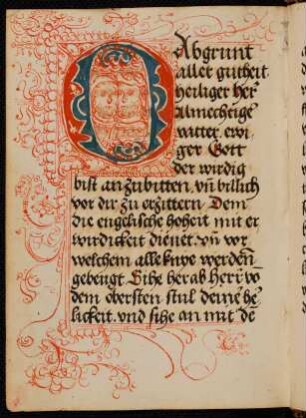 O Abgrunt
aller gutheit
heiliger her
Almechtige
vatter, ewi-
ger Gott
der wirdig
bist an zu bitten, vn̄ billich
vor dir zu erzittern Dem
die engelische hoheit mit er
wirdickeit dienet. vn̄ vor
welchem alle knye werden
gebeugt Sihe herab Herr vō
dem obersten stul deiner he
lickeit. vnd sihe an mit dē